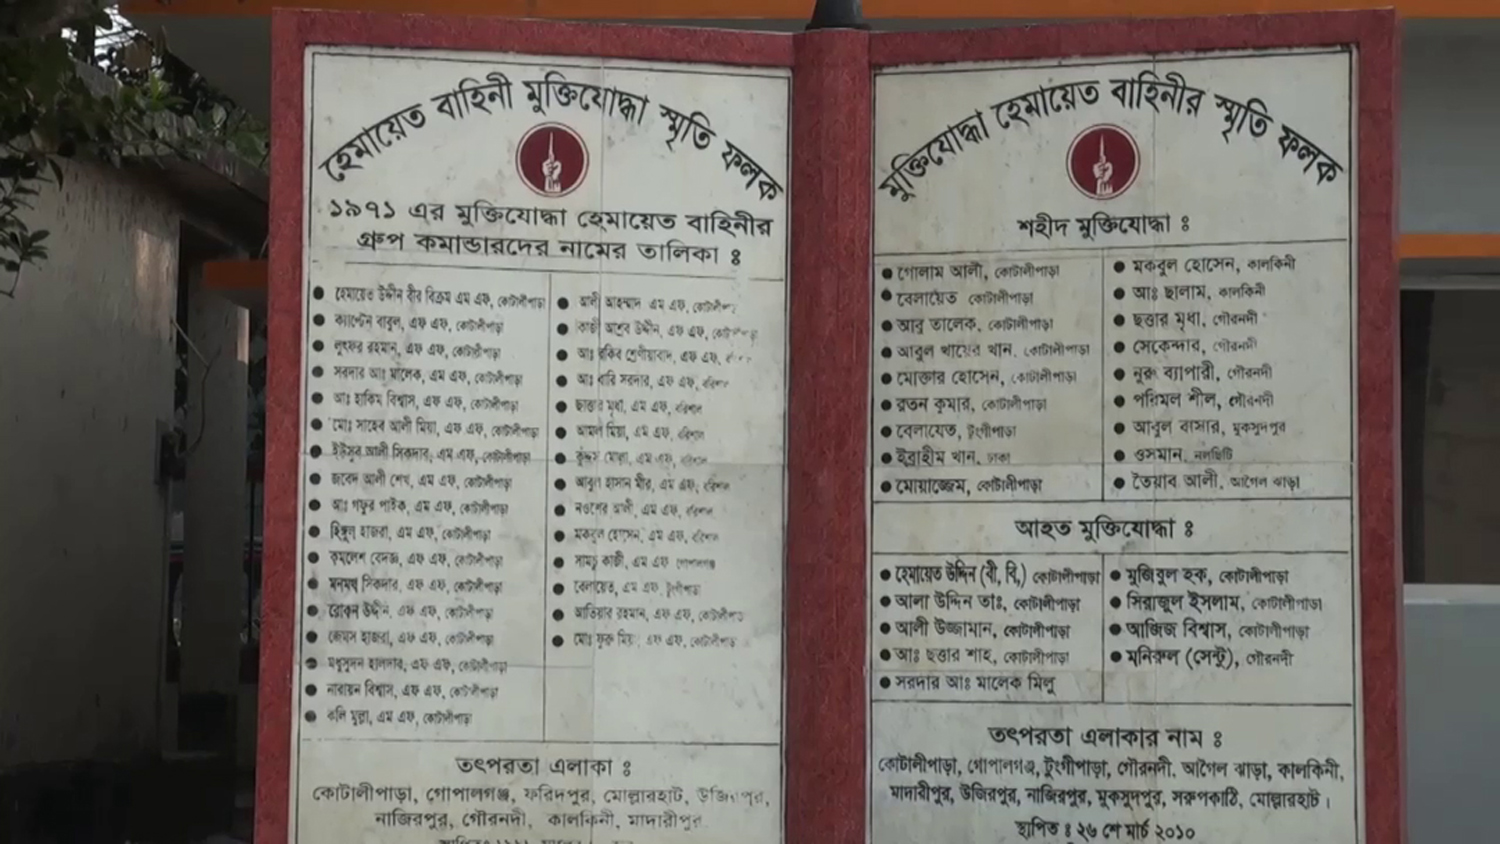 হেমায়েত বাহিনী মুক্তিযোদ্ধা স্মৃতি ফলক
১৯৭১ এর মুক্তিযোদ্ধা হেমায়েত বাহিনীর
গ্রুপ কমান্ডারদের নামের তালিকা ঃ
হেমায়েত উদ্দীন বীর বিক্রম এম এফ, কোটালীপাড়া
ক্যাপ্টেন বাবুল, এফ এফ, কোটালীপাড়া
লুৎফর রহমান, এফ এফ, কোটালীপাড়া
সরদার আঃ মালেক, এম এফ, কোটালীপাড়া
আঃ হাকিম বিশ্বাস, এফ এফ, কোটালীপাড়া
মোঃ সাহেব আলী মিয়া, এফ এফ, কোটালীপাড়া
ইউসুব আলী সিকদার, এম এফ, কোটালীপাড়া
জবেদ আলী শেখ, এম এফ, কোটালীপাড়া
আঃ গফুর পাইক, এম এফ, কোটালীপাড়া
হিঙ্গুল হাজরা, এম এফ, কোটালীপাড়া
কমলেশ বেদজ্ঞ, এফ এফ, কোটালীপাড়া
মনমথ সিকদার, এফ এফ, কোটালীপাড়া
রোকন উদ্দীন, এফ এফ, কোটালীপাড়া
জেমস হাজরা, এফ এফ, কোটালীপাড়া
মধুসুদন হালদার, এফ এফ, কোটালীপাড়া
নারায়ন বিশ্বাস, এফ এফ, কোটালীপাড়া
কলি মুল্লা, এম এফ, কোটালীপাড়া
আলী আহম্মদ এম এফ,
কাজী আশ্রব উদ্দীন, এফ এফ,
আঃ রকিব সেরনীয়াবাদ, এফ এফ,
আঃ বারি সরদার, এফ এফ, বরিশাল
ছাত্তার মৃধা, এম এফ, বরিশাল
আমল মিয়া, এম এফ, বরিশাল
কুদ্দুস মোল্লা, এম এফ, বরিশাল
আবুল হাসান মীর, এম এফ, বরিশাল
নওশের আলী, এম এফ, বরিশাল
মকবুল হোসেন, এম এফ, বরিশাল
সামচু কাজী, এম এফ গোপালগঞ্জ
বেলায়েত, এম এফ, টুংগীপাড়া
আতিয়ার রহমান, এফ এফ, কোটালীপাড়া
মোঃ ফুরু মিয়া, এফ এফ, কোটালীপাড়া
তৎপরতা এলাকা ঃ
কোটালীপাড়া, গোপালগঞ্জ, ফরিদপুর, মোল্লারহাট, উজিরপুর,
নাজিরপুর, গৌরনদী, কালকিনী, মাদারীপুর
মুক্তিযোদ্ধা হেমায়েত বাহিনীর স্মৃতি ফলক
শহীদ মুক্তিযোদ্ধা ঃ
গোলাম আলী, কোটালীপাড়া
বেলায়েত কোটালীপাড়া
আবু তালেক, কোটালীপাড়া
আবুল খায়ের খান, কোটালীপাড়া
মোক্তার হোসেন, কোটালীপাড়া
রতন কুমার, কোটালীপাড়া
বেলায়েত, টুংগীপাড়া
ইব্রাহীম খান, ঢাকা
মোয়াজ্জেম, কোটালীপাড়া
মকবুল হোসেন, কালকিনী
আঃ ছালাম, কালকিনী
ছত্তার মৃধা, গৌরনদী
সেকেন্দার, গৌরনদী
নুরু ব্যাপারী, গৌরনদী
পরিমল শীল, গৌরনদী
আবুল বাসার, মুকসুদপুর
ওসমান, নলছিটি
তৈয়াব আলী, আগৈল ঝাড়া
আহত মুক্তিযোদ্ধা ঃ
হেমায়েত উদ্দিন (বী, বি,) কোটালীপাড়া
আলা উদ্দিন তাঃ, কোটালীপাড়া
আলী উজ্জামান, কোটালীপাড়া
আঃ ছত্তার শাহ, কোটালীপাড়া
সরদার আঃ মালেক মিলু
মুজিবুল হক, কোটালীপাড়া
সিরাজুল ইসলাম, কোটালীপাড়া
আজিজ বিশ্বাস, কোটালীপাড়া
মনিরুল (সেন্টু), গৌরনদী
তৎপরতা এলাকার নাম ঃ
কোটালীপাড়া, গোপালগঞ্জ, টুংগীপাড়া, গৌরনদী, আগৈল ঝাড়া, কালকিনী,
মাদারীপুর, উজিরপুর, নাজিরপুর, মুকসুদপুর, সরুপকাঠি, মোল্লারহাট।
স্থাপিত ঃ ২৬ শে মার্চ ২০১০